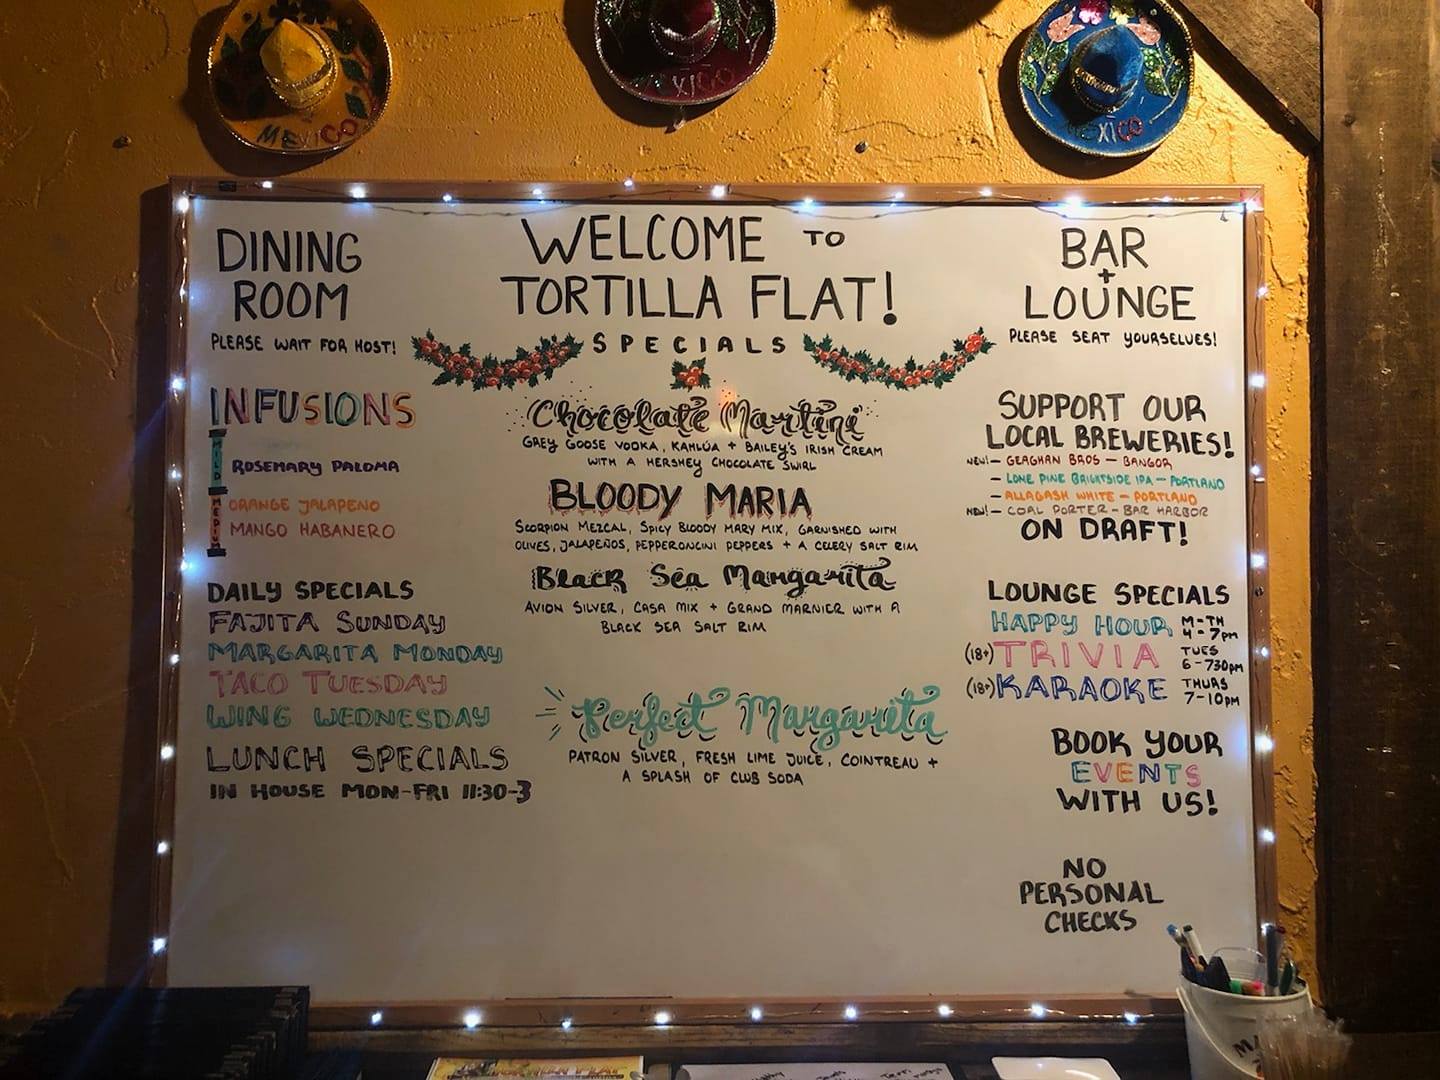 MEXICO
MEXICO
MEXICO
DINING
ROOM
PLEASE WAIT FOR HOST!
INFUSIONS
MILD
ROSEMARY PALOMA
MEDIUM
ORANGE JALAPENO
MANGO HABANERO
DAILY SPECIALS
FAJITA SUNDAY
MARGARITA MONDAY
TACO TUESDAY
WING WEDNESDAY
LUNCH SPECIALS
IN HOUSE MON-FRI 11:30-3
WELCOME TO
TORTILLA FLAT!
SPECIALS
Chocolate Martini
GREY GOOSE VODKA, KAHLÚA + BAILEY'S IRISH CREAM
WITH A HERSHEY CHOCOLATE SWIRL
BLOODY MARIA
SCORPION MEZCAL, SPICY BLOODY MARY MIX, GARNISHED WITH
OLIVES, JALAPEÑOS, PEPPERONCINI PEPPERS + A CELERY SALT RIM
Black Sea Margarita
AVION SILVER, CASA MIX + GRAND MARNIER WITH A
BLACK SEA SALT RIM
Perfect Margarita
PATRON SILVER, FRESH LIME JUICE, COINTREAU +
A SPLASH OF CLUB SODA
BAR
+
LOUNGE
PLEASE SEAT YOURSELVES!
SUPPORT OUR
LOCAL BREWERIES!
NEW! - GEAGHAN BROS - BANGOR
- LONE PINE BRIGHTSIDE IPA - PORTLAND
- ALLAGASH WHITE - PORTLAND
NEW! - COAL PORTER - BAR HARBOR
ON DRAFT!
LOUNGE SPECIALS
HAPPY HOUR M-TH 4-7pm
(18+) TRIVIA TUES 6-730pm
(18+) KARAOKE THURS 7-10pm
BOOK YOUR
EVENTS
WITH US!
NO
PERSONAL
CHECKS